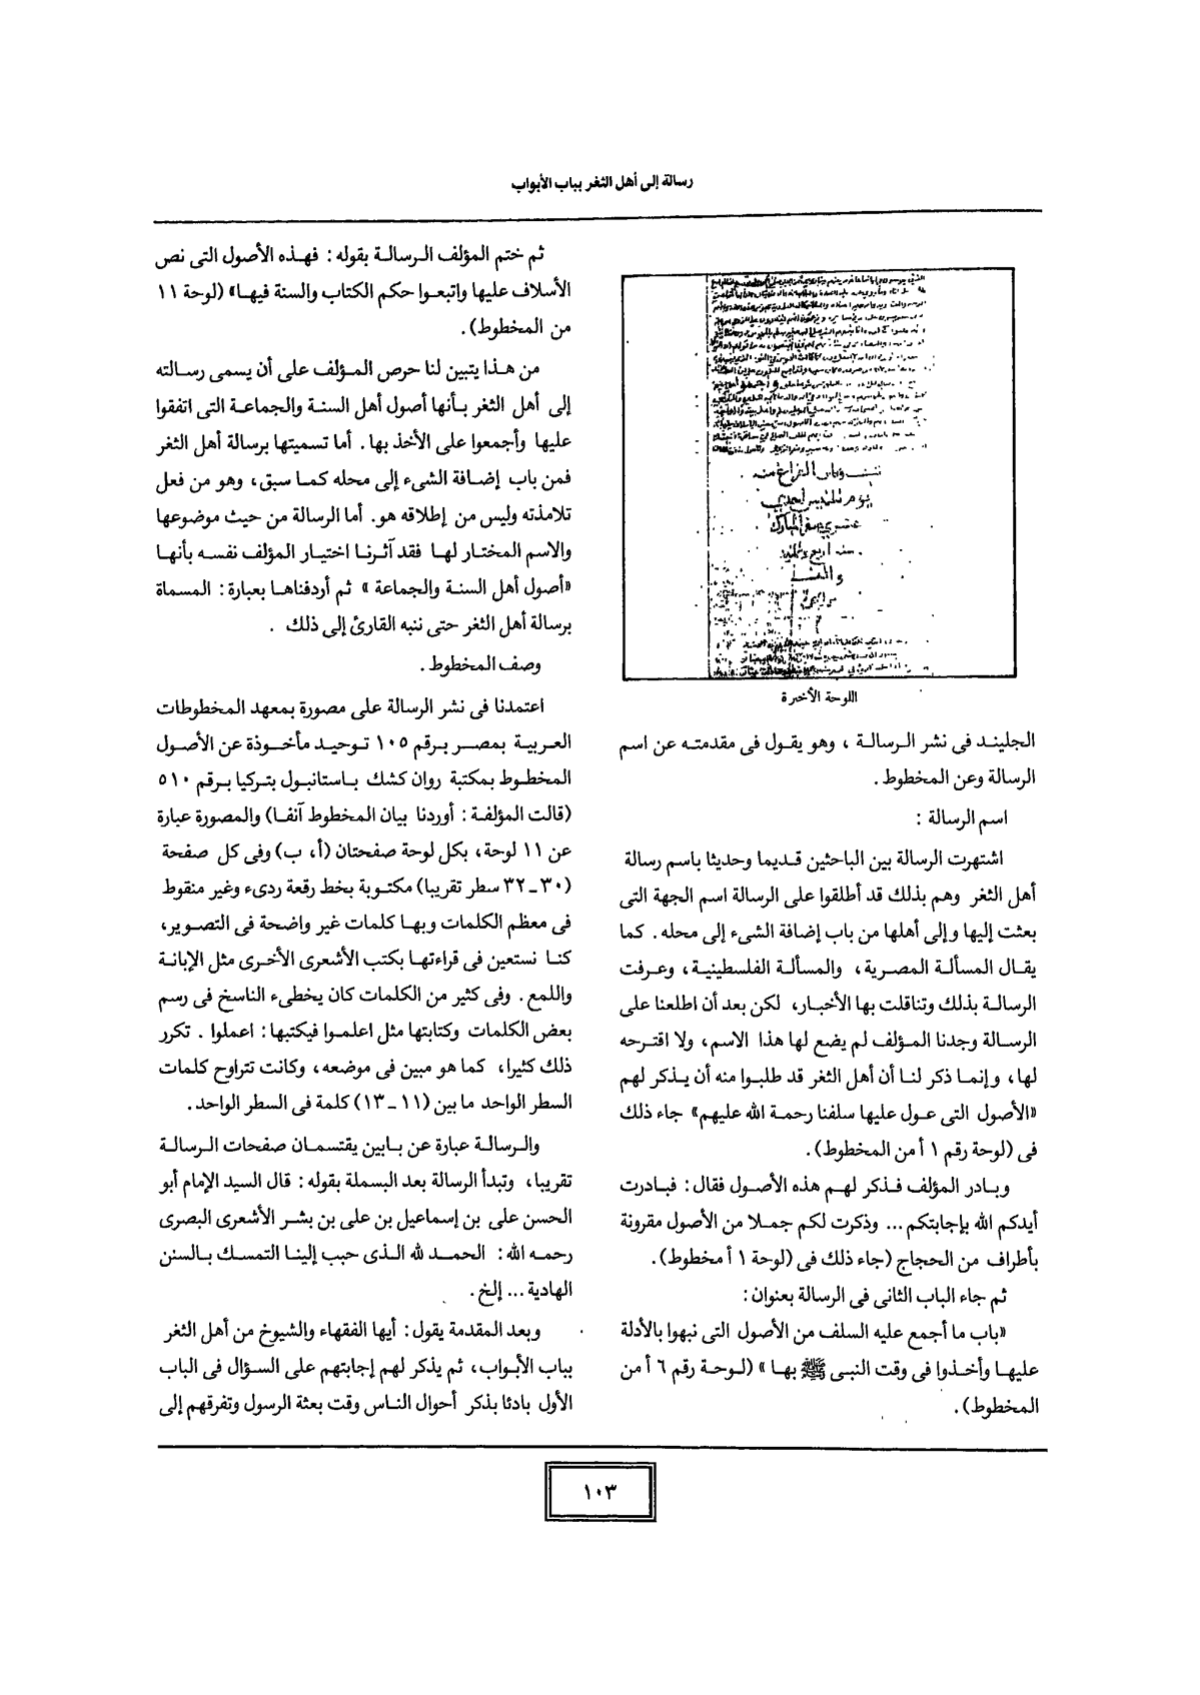 رسالة إلى أهل الثغر بباب الأبواب
اللوحة الأخيرة
الجليند فى نشر الرسالة ، وهو يقول فى مقدمته عن اسم
الرسالة وعن المخطوط .
اسم الرسالة :
اشتهرت الرسالة بين الباحثين قديما وحديثا باسم رسالة
أهل الثغر وهم بذلك قد أطلقوا على الرسالة اسم الجهة التى
بعثت إليها وإلى أهلها من باب إضافة الشىء إلى محله . كما
يقال المسألة المصرية ، والمسألة الفلسطينية ، وعرفت
الرسالة بذلك وتناقلت بها الأخبار ، لكن بعد أن اطلعنا على
الرسالة وجدنا المؤلف لم يضع لها هذا الاسم ، ولا اقترحه
لها ، وإنما ذكر لنا أن أهل الثغر قد طلبوا منه أن يذكر لهم
«الأصول التى عول عليها سلفنا رحمة الله عليهم» جاء ذلك
فى (لوحة رقم ١ أ من المخطوط) .
وبادر المؤلف فذكر لهم هذه الأصول فقال : فبادرت
أيدكم الله بإجابتكم ... وذكرت لكم جملا من الأصول مقرونة
بأطراف من الحجاج (جاء ذلك فى (لوحة ١ أ مخطوط) .
ثم جاء الباب الثانى فى الرسالة بعنوان :
«باب ما أجمع عليه السلف من الأصول التى نبهوا بالأدلة
عليها وأخذوا فى وقت النبى ﷺ بها » (لوحة رقم ٦ أ من
المخطوط) .
ثم ختم المؤلف الرسالة بقوله : فهذه الأصول التى نص
الأسلاف عليها واتبعوا حكم الكتاب والسنة فيها» (لوحة ١١
من المخطوط) .
من هذا يتبين لنا حرص المؤلف على أن يسمى رسالته
إلى أهل الثغر بأنها أصول أهل السنة والجماعة التى اتفقوا
عليها وأجمعوا على الأخذ بها . أما تسميتها برسالة أهل الثغر
فمن باب إضافة الشىء إلى محله كما سبق ، وهو من فعل
تلامذته وليس من إطلاقه هو . أما الرسالة من حيث موضوعها
والاسم المختار لها فقد آثرنا اختيار المؤلف نفسه بأنها
«أصول أهل السنة والجماعة » ثم أردفناها بعبارة : المسماة
برسالة أهل الثغر حتى ننبه القارئ إلى ذلك .
وصف المخطوط .
اعتمدنا فى نشر الرسالة على مصورة بمعهد المخطوطات
العربية بمصر برقم ١٠٥ توحيد مأخوذة عن الأصول
المخطوط بمكتبة روان كشك باستانبول بتركيا برقم ٥١٠
(قالت المؤلفة : أوردنا بيان المخطوط آنفا) والمصورة عبارة
عن ١١ لوحة ، بكل لوحة صفحتان (أ ، ب) وفى كل صفحة
(٣٠ ـ ٣٢ سطر تقريبا) مكتوبة بخط رقعة ردىء وغير منقوط
فى معظم الكلمات وبها كلمات غير واضحة فى التصوير ،
كنا نستعين فى قراءتها بكتب الأشعرى الأخرى مثل الإبانة
واللمع . وفى كثير من الكلمات كان يخطىء الناسخ فى رسم
بعض الكلمات وكتابتها مثل اعلموا فيكتبها : اعملوا . تكرر
ذلك كثيرا ، كما هو مبين فى موضعه ، وكانت تتراوح كلمات
السطر الواحد ما بين (١١ ـ ١٣) كلمة فى السطر الواحد .
والرسالة عبارة عن بابين يقتسمان صفحات الرسالة
تقريبا ، وتبدأ الرسالة بعد البسملة بقوله : قال السيد الإمام أبو
الحسن على بن إسماعيل بن على بن بشر الأشعرى البصرى
رحمه الله : الحمد لله الذى حبب إلينا التمسك بالسنن
الهادية ... إلخ .
وبعد المقدمة يقول : أيها الفقهاء والشيوخ من أهل الثغر
بباب الأبواب ، ثم يذكر لهم إجابتهم على السؤال فى الباب
الأول بادئا بذكر أحوال الناس وقت بعثة الرسول وتفرقهم إلى
١٠٣